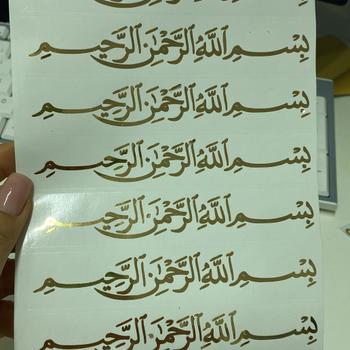 بِسْمِ اللَّهِ الرَّحْمَٰنِ الرَّحِيمِ
بِسْمِ اللَّهِ الرَّحْمَٰنِ الرَّحِيمِ
بِسْمِ اللَّهِ الرَّحْمَٰنِ الرَّحِيمِ
بِسْمِ اللَّهِ الرَّحْمَٰنِ الرَّحِيمِ
بِسْمِ اللَّهِ الرَّحْمَٰنِ الرَّحِيمِ
بِسْمِ اللَّهِ الرَّحْمَٰنِ الرَّحِيمِ